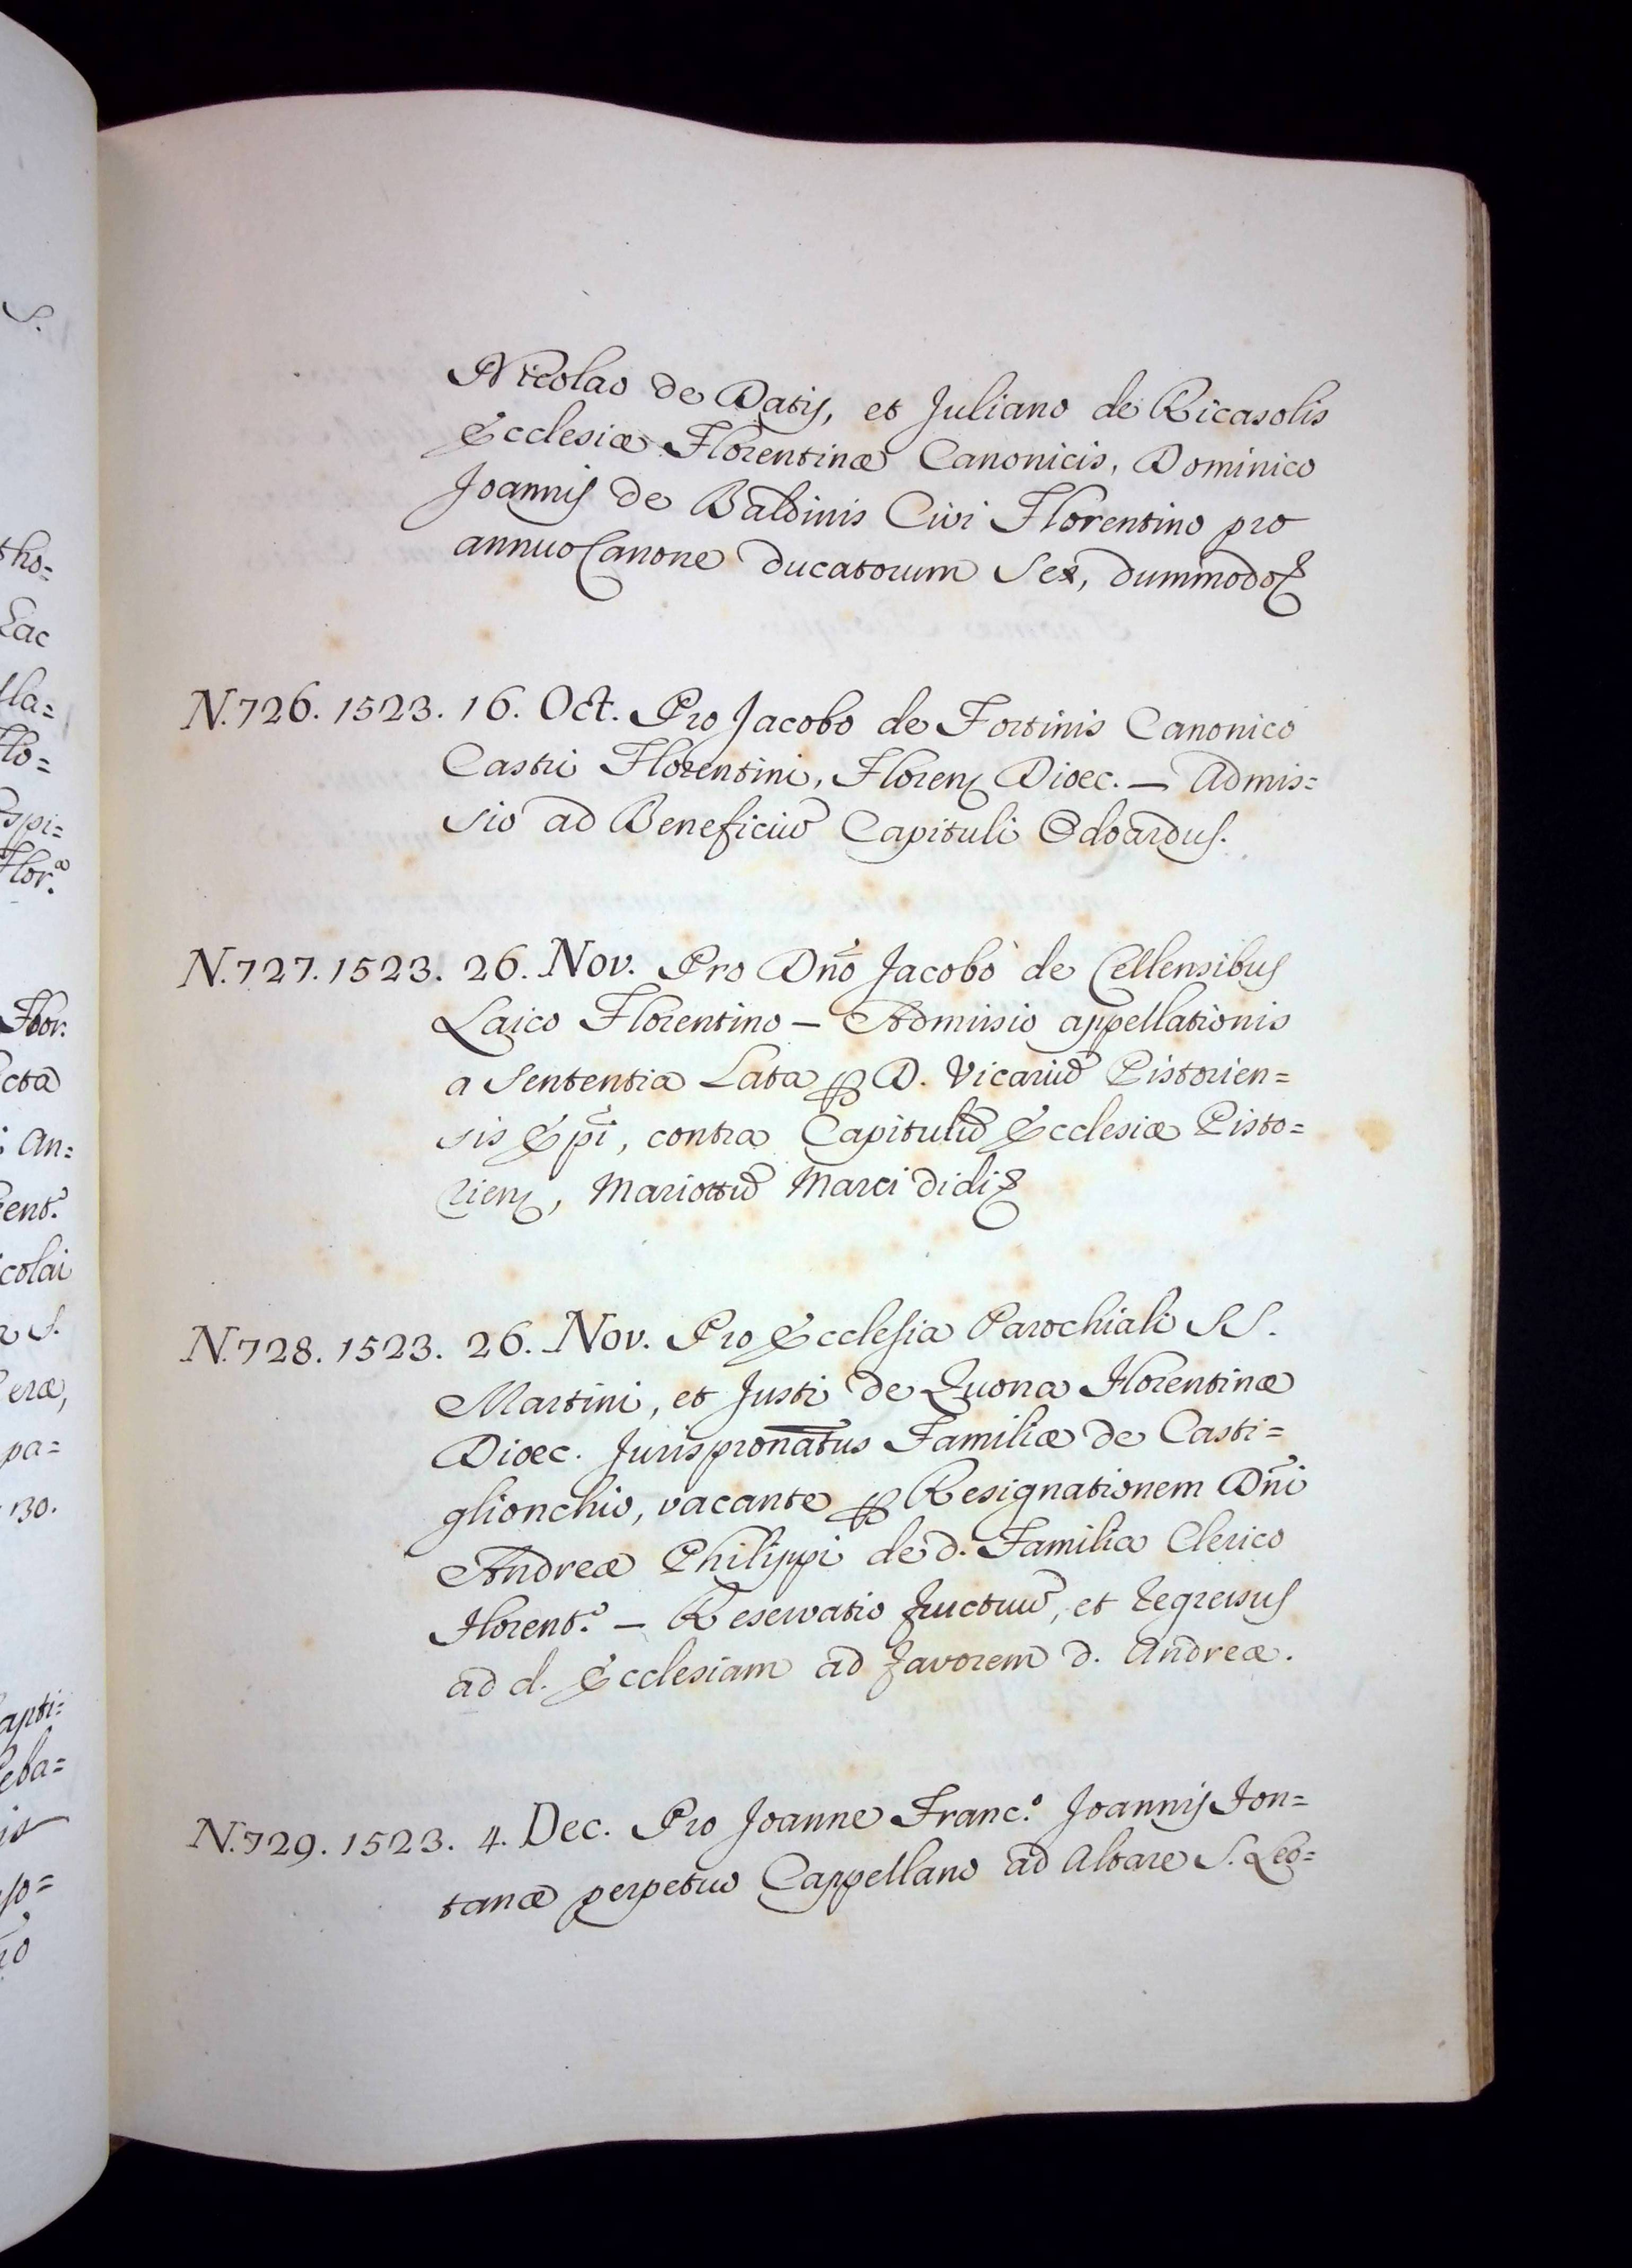 Nicolao de Datijs, et Juliano de Ricasolis
Ecclesiæ Florentinæ Canonicis, Dominico
Joannis de Baldinis Civi Florentino pro
annuo Canone ducatorum Sex, dummodo
N. 726. 1523. 16. Oct. Pro Jacobo de Fortinis Canonico
Castri Florentini, Floren Dioec. — Admis=
sio ad Beneficiũ Capituli Odoardus.
N. 727. 1523. 26. Nov. Pro Dño Jacobo de Cellensibus
Laico Florentino — Admissio appellationis
a Sententia Lata ꝑ D. Vicariũ Pistorien=
sis Epĩ, contra Capitulũ Ecclesiæ Pisto=
rien, Mariottũ Marci didi
N. 728. 1523. 26. Nov. Pro Ecclesia Parochiali SS.
Martini, et Justi de Quona Florentinæ
Dioec. Jurispronatus Familiæ de Casti=
glionchio, vacante ꝑ Resignationem Dñi
Andreæ Philippi de d. Familia Clerico
Florent.º — Reservatio fructuũ, et regressus
ad d. Ecclesiam ad favorem d. Andreæ.
N. 729. 1523. 4. Dec. Pro Joanne Franc.º Joannis Fon=
tanæ perpetuo Cappellano ad Altare S. Leo=
S.
tho=
Lac
lla=
Flo=
spi=
Flor.æ
Flor.
cta
An=
ent.
colai
S.
eræ,
pa=
130.
apti=
eba=